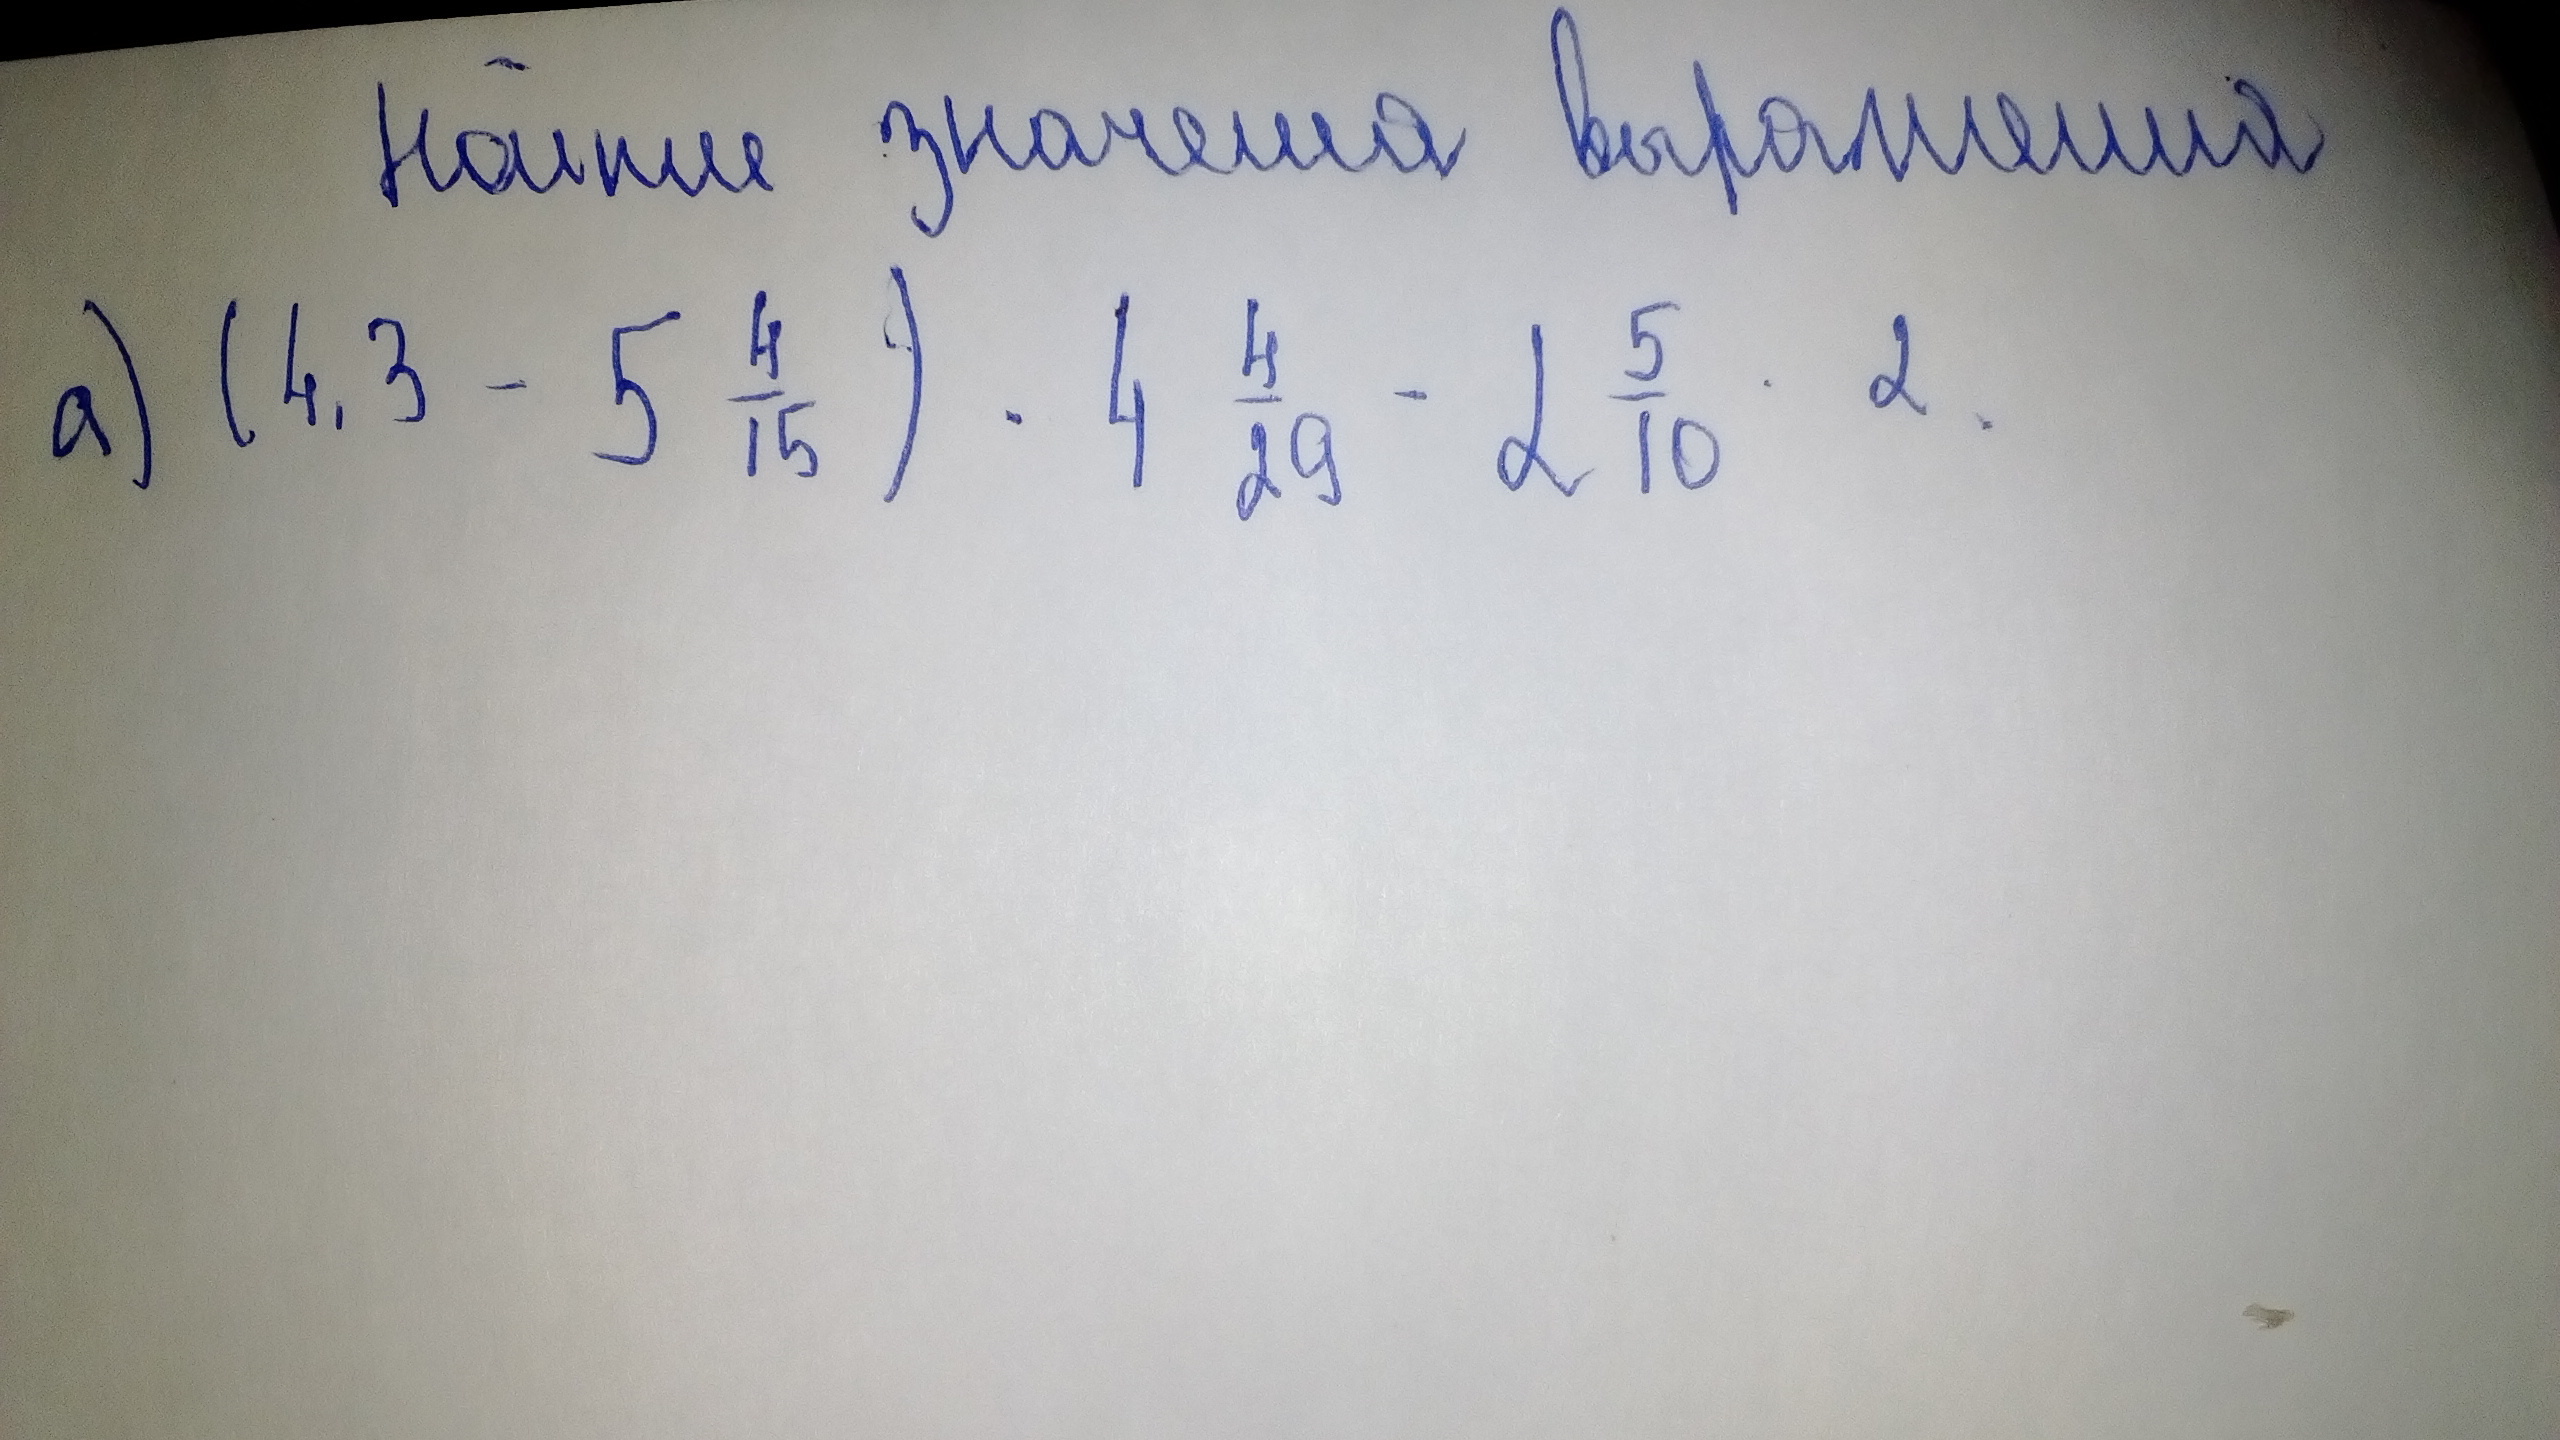 Найти значения выражения
а) (4,3 - 5 4/15) · 4 4/29 - 2 5/10 · 2.